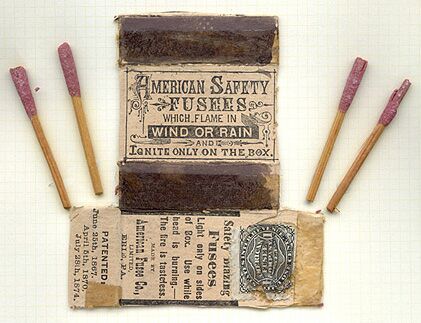 AMERICAN SAFETY
FUSEES
WHICH FLAME IN
WIND OR RAIN
AND
IGNITE ONLY ON THE BOX.
Safety Blazing
Fusees
Light only on sides
of Box. Use while
head is burning.
The fire is tasteless.
MADE BY
American Fusee Co.
LIMITED,
ERIE, PA.
PATENTED:
June 25th, 1867.
April 5th, 1870.
July 28th, 1874.